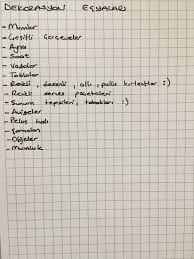 DEKORASYON EŞYALARI
- Mumlar
- Çeşitli Çerçeveler
- Ayna
- Saat
- Vazolar
- Tablolar
- Renkli, desenli, allı, pullu kırlentler :)
- Renkli servis peçeteleri
- Sunum tepsileri, tabakları :)
- Avizeler
- Peluş halı
- Şamdan
- Objeler
- Mumluk